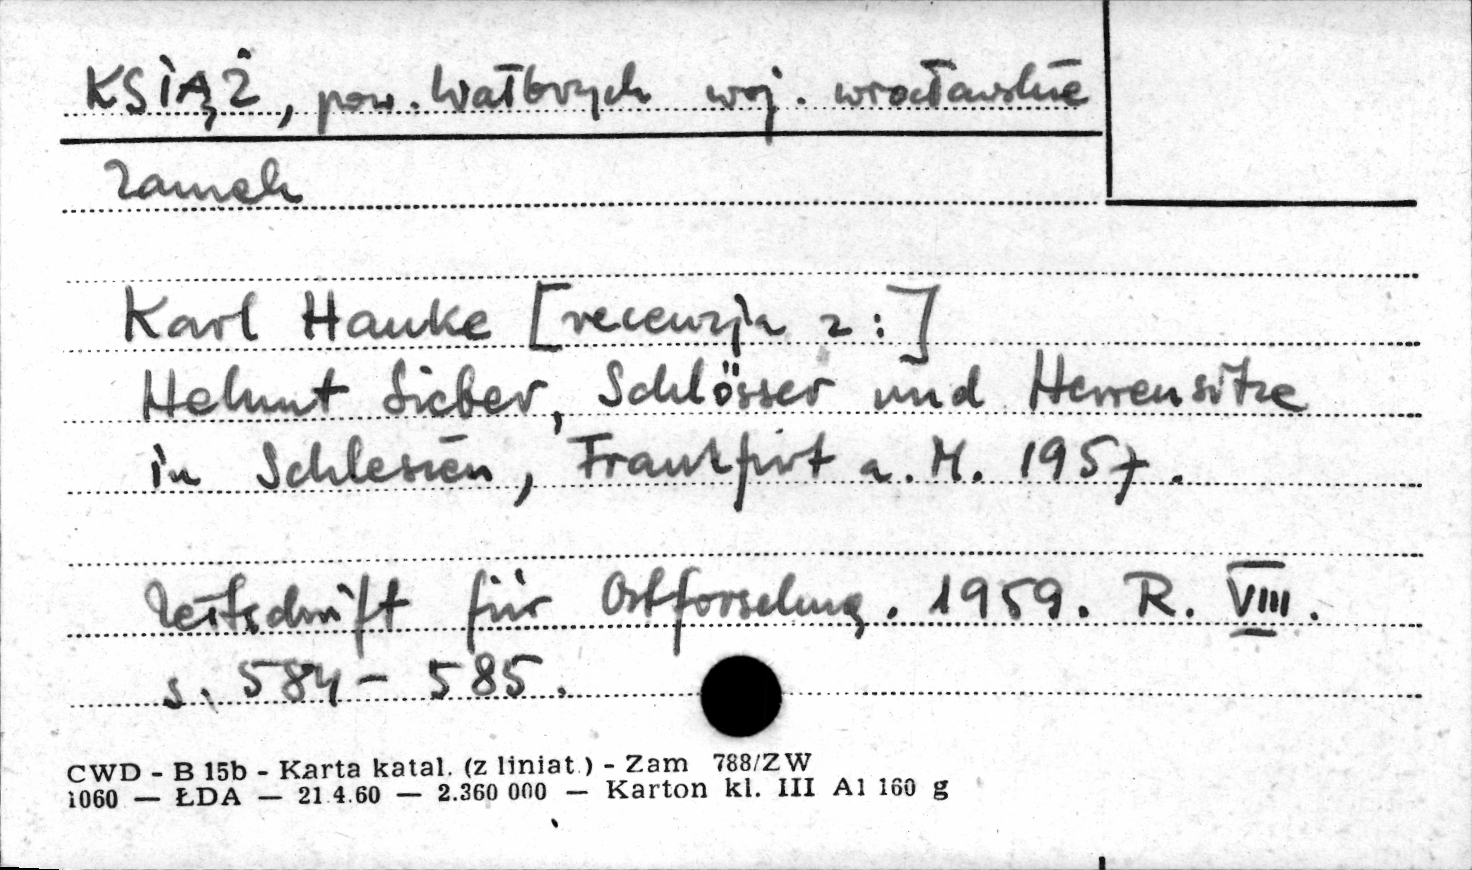 KSIĄŻ, pow. Wałbrzych woj. wrocławskie
Zamek
Karl Hauke [recenzja z:]
Helmut Sieber, Schlösser und Herrensitze
in Schlesien, Frankfurt a. M. 1957.
Zeitschrift für Ostforschung. 1959. R. VIII.
s. 584 - 585.
CWD - B 15b - Karta katal. (z liniat.) - Zam 788/ZW
1060 — ŁDA — 21.4.60 — 2.360 000 — Karton kl. III A1 160 g